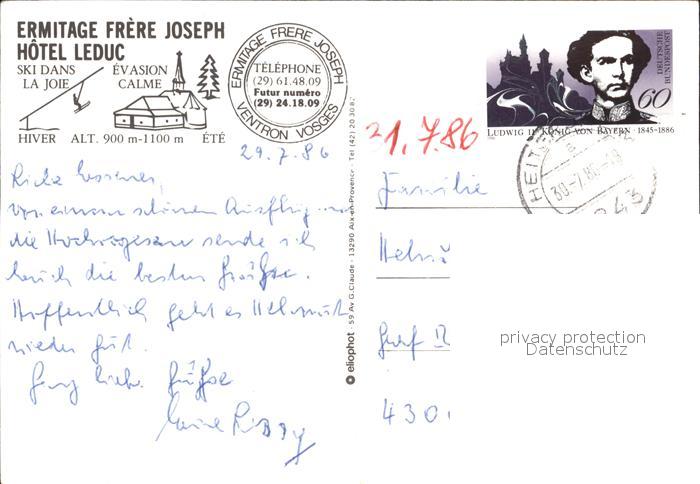 ERMITAGE FRÈRE JOSEPH
HÔTEL LEDUC
SKI DANS
LA JOIE
ÉVASION
CALME
HIVER ALT. 900 m-1100 m ÉTÉ
ERMITAGE FRERE JOSEPH
TÉLÉPHONE
(29) 61.48.09
Futur numéro
(29) 24.18.09
VENTRON VOSGES
29.7.86
von einem schönen Ausflug
die Hochvogesen sende ich
Euch die besten Grüße.
Hoffentlich geht es Helmut
wieder gut.
Ganz liebe Grüße
eliophot - 59 Av G.Claude - 13290 Aix-en-Provence - Tél (42) 20.30.82
DEUTSCHE
BUNDESPOST
60
LUDWIG II. KÖNIG VON BAYERN · 1845-1886
30.-7.86
21.7.86
Familie
430
privacy protection
Datenschutz